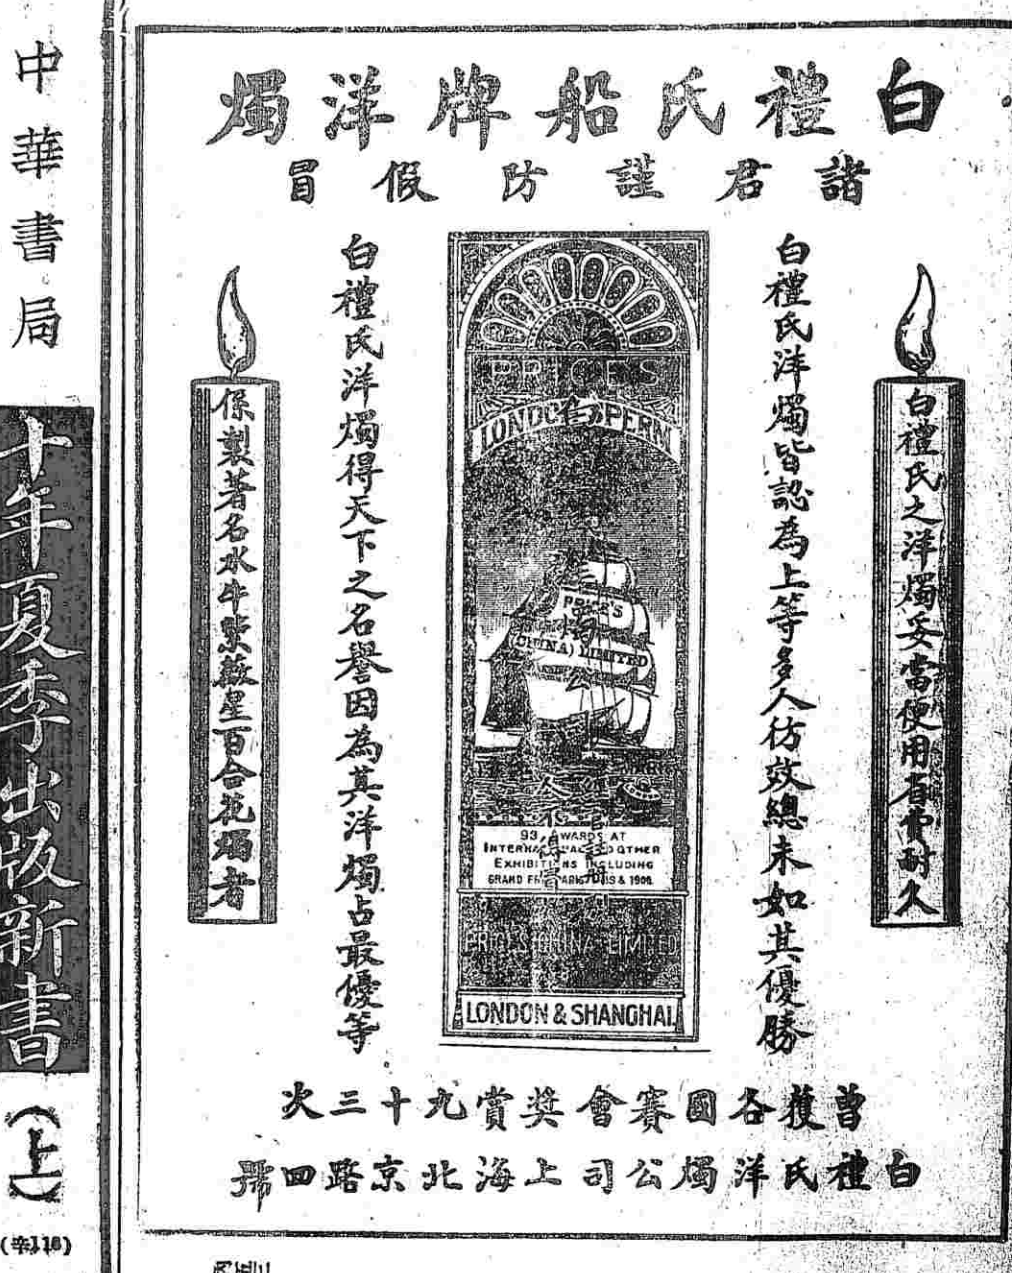 白禮氏船牌洋燭
諸君謹防假冒
白禮氏之洋燭妥當使用省費耐久
白禮氏洋燭皆認為上等多人彷效總未如其優勝
PRICE'S
LONDON SPERM
PRICE'S
(CHINA) LIMITED
93 AWARDS AT
INTERNATIONAL AND OTHER
EXHIBITIONS INCLUDING
GRAND PRIX PARIS
& 1908.
PRICE'S CHINA LIMITED
LONDON & SHANGHAI.
白禮氏洋燭得天下之名譽因為其洋燭占最優等
係製著名水牛紫薇星百合花燭者
曾獲各國賽會獎賞九十三次
白禮氏洋燭公司上海北京路四號
中華書局
十年夏季出版新書
(上)
(辛118)